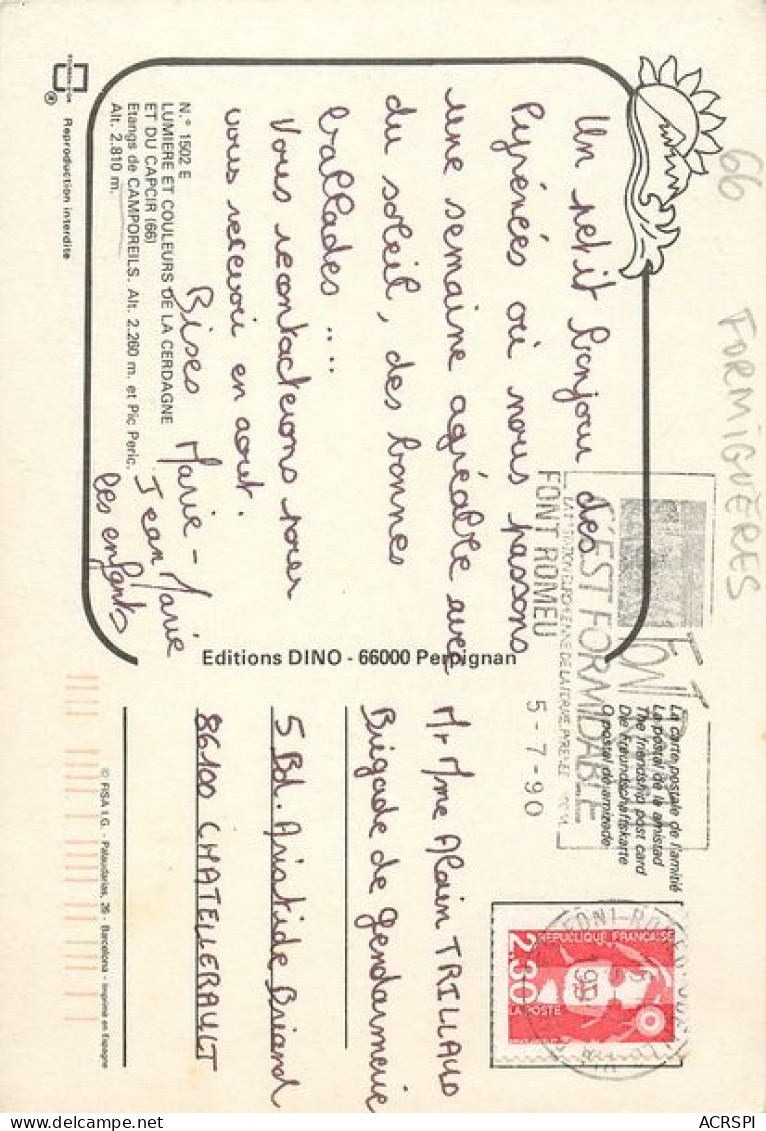 66 FORMIGUÈRES
Un petit bonjour des
Pyrénées où nous passons
une semaine agréable avec
du soleil, des bonnes
ballades ....
Vous recontacterons pour
vous recevoir en aout.
Bises Marie-
Jean Marie
les enfants
N.° 1502 E
LUMIERE ET COULEURS DE LA CERDAGNE
ET DU CAPCIR (66)
Etangs de CAMPOREILS. Alt. 2.260 m. et Pic Peric.
Alt. 2.810 m.
Reproduction interdite
Editions DINO - 66000 Perpignan
C'EST FORMIDABLE
FONT ROMEU
5-7-90
La carte postale de l'amitié
La postal de la amistad
The friendship post card
Die Freundschaftskarte
O postal de amizade
REPUBLIQUE FRANÇAISE
2,30
LA POSTE
Mr Mme Alain TRILLAUD
Brigade de Gendarmerie
5 Bd. Aristide Briand
86100 CHATELLERAULT
© FISA I.G. - Palaudarias, 26 - Barcelona - Imprimé en Espagne
ACRSPI